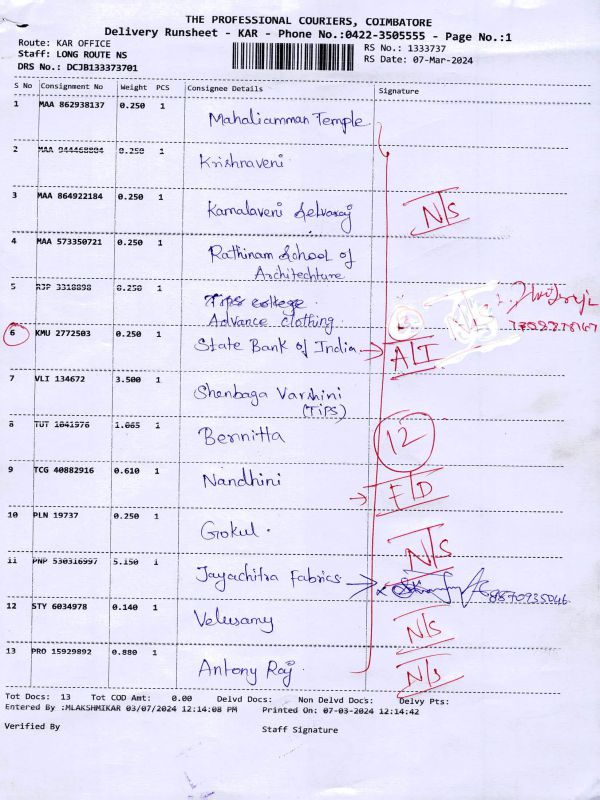 THE PROFESSIONAL COURIERS, COIMBATORE
Delivery Runsheet - KAR - Phone No.:0422-3505555 - Page No.:1
Route: KAR OFFICE RS No.: 1333737
Staff: LONG ROUTE NS RS Date: 07-Mar-2024
DRS No.: DCJB133373701
S No Consignment No Weight PCS Consignee Details Signature
1 MAA 862938137 0.250 1 Mahaliamman Temple
2 MAA 944468804 0.250 1 Krishnaveni
3 MAA 864922184 0.250 1 Kamalaveni Selvaraj N/S
4 MAA 573350721 0.250 1 Rathinam School of
Architechture
5 RJP 3318898 0.250 1 Tips college
Advance clothing
6 KMU 2772503 0.250 1 State Bank of India A/T
7 VLI 134672 3.500 1 Shenbaga Varshini
(TIPS)
8 TUT 1041976 1.065 1 Bennitta 12
9 TCG 40882916 0.610 1 Nandhini F/D
10 PLN 19737 0.250 1 Gokul. N/S
11 PNP 530316997 5.150 1 Jayachitra Fabrics 8870935046
12 STY 6034978 0.140 1 Velusamy N/S
13 PRO 15929892 0.880 1 Antony Raj N/S
Tot Docs: 13 Tot COD Amt: 0.00 Delvd Docs: Non Delvd Docs: Delvy Pts:
Entered By :MLAKSHMIKAR 03/07/2024 12:14:08 PM Printed On: 07-03-2024 12:14:42
Verified By Staff Signature